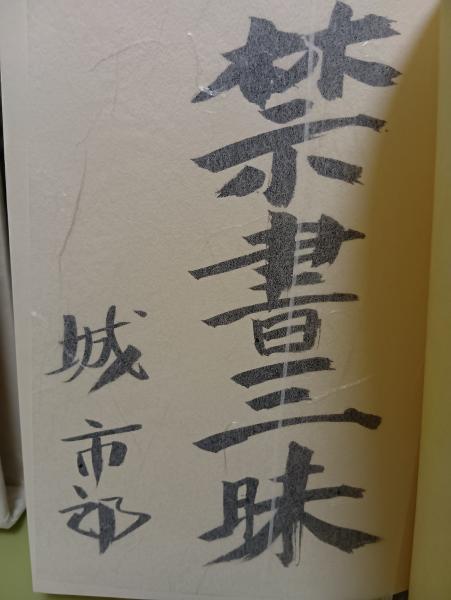 禁書三昧
城市郎